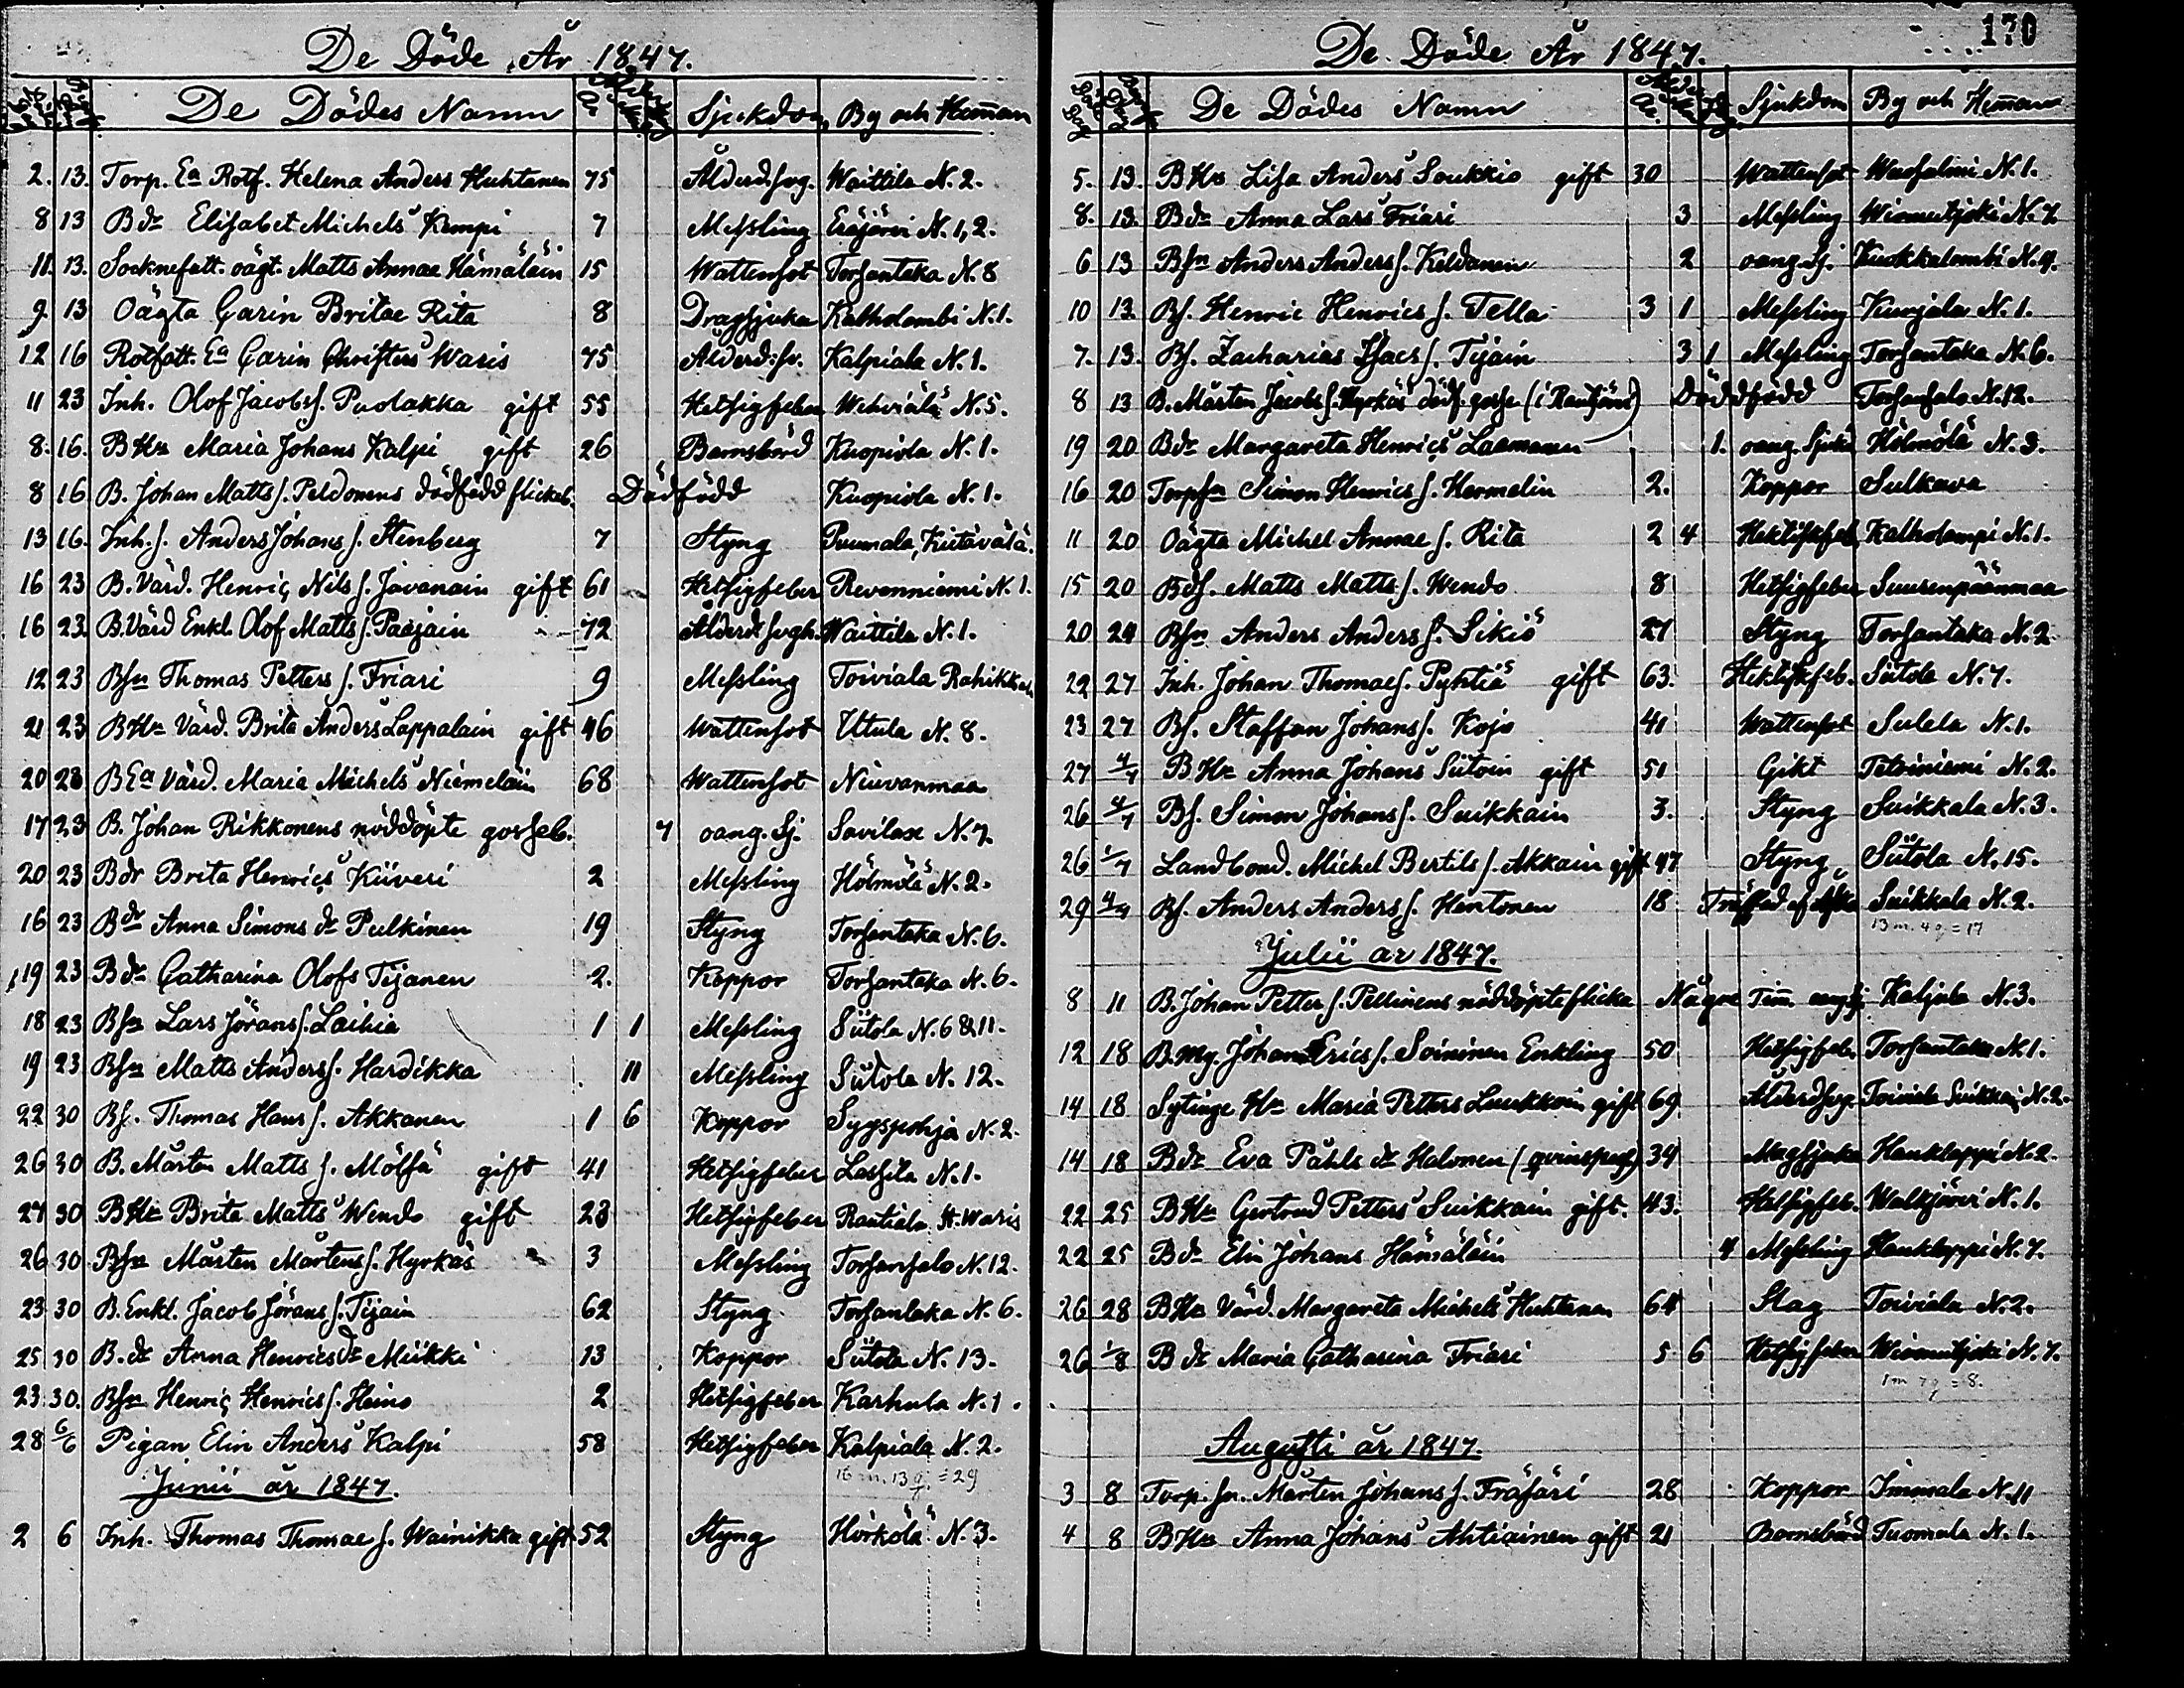 De Döde År 1847.
De Dödes Namn Sjukdom By och Hem̄an
2. 13. Torp. Ea Rotf. Helena Anders Huhtanen 75 Ålderd.svg. Waittila N. 2.
8 13 Bdr Elisabet Michels Kempi 7 Messling Eräjärvi N. 1, 2.
11. 13. Socknefatt. oägt. Matts Annae Hämäläin 15 Wattensot Torsantaka N. 8
9 13 Oägta Carin Britae Rita 8 Dragsjuka Kalholambi N. 1.
12 16 Rotfatt. Ea Carin Christers Waris 75 Ålderd:sv. Kalpiala N. 1.
11 23 Inh. Olof Jacobs s. Puolakka gift 55 Hetsigfeber Wehviälä N. 5.
8. 16. BHu Maria Johans Kalpi gift 26 Barnsbörd Kuopiola N. 1.
8 16 B. Johan Matts s. Peldonens dödfödd flickeb. Dödfödd Kuopiola N. 1.
13 16. Inh. s. Anders Johans s. Stenberg 7 Styng Puumala, Kietävälä.
16 23 B. Värd. Henric Nils s. Javanain gift 61 Hetsigfeber Revonniemi N. 1.
16 23. B. Värd Enkl. Olof Matts s. Paajain 72 Ålderd. svgh. Waittila N. 1.
12 23 Bsn Thomas Petters s. Friari 9 Messling Toiviala Rahikkal.
21 23 BHu Värd. Brita Anders Lappalain gift 46 Wattensot Utula N. 8.
20 23 BEa Värd. Maria Michels Niemeläin 68 Wattensot Niuvanmaa
17 23 B. Johan Rikkonens nöddöpte gosseb. 7 oang. Sj. Savilax N. 7.
20 23 Bdr Brita Henrics Kiiveri 2 Messling Hölmölä N. 2.
16 23 Bdr Anna Simons dr Pulkinen 19 Styng Torsantaka N. 6.
19 23 Bdr Catharina Olofs Tijanen 2. Koppor Torsantaka N. 6.
18 23 Bsn Lars Jörans s. Laihia 1 1 Messling Sütola N. 6 & 11.
19 23 Bsn Matts Anders s. Hardikka 11 Messling Sütola N. 12.
22 30 Bs. Thomas Hans s. Akkanen 1 6 Koppor Syyspohja N. 2.
26 30 B. Mårten Matts s. Mölsä gift 41 Hetsigfeber Lassila N. 1.
27 30 BHu Brita Matts Wendo gift 23 Hetsigfeber Rautiala St. Waris
26 30 Bsn Mårten Mårtens s. Hyrkäs 3 Messling Torsansalo N. 12.
23 30 B. Enkl. Jacob Jörans s. Tijain 62 Styng Torsantaka N. 6.
25 30 B. dr Anna Henricsdr Miikki 13 Koppor Sütola N. 13.
23. 30. Bsn Henric Henrics s. Heino 2 Hetsigfeber Karhula N. 1.
28 6/6 Pigan Elin Anders Kalpi 58 Hetsigfeber Kalpiala N. 2.
16 m. 13 q. = 29
Junii år 1847.
2 6 Inh. Thomas Thomae s. Wainikka gift 52 Styng Härkölä N. 3.
170
De Döde År 1847.
De Dödes Namn Sjukdom By och Hem̄an
5. 13. BHu Lisa Anders Soukkio gift 30 Wattensot N. 1.
8. 13. Bdr Anna Lars Friari 3 Messling N. 7.
6 13 Bsn Anders Anders s. Keldanen 2 oang. Sj. Kuokkalambi N. 9.
10 13. Bs. Henric Henrics s. Tella 3 1 Messling Kurjala N. 1.
7. 13. Bs. Zacharias Isacs s. Tijain 3 1 Messling Torsantaka N. 6.
8 13 B. Mårten Jacobs s. Hyrkäs dödf. gosse (i Rautjärvi) Döddfödd Torsansalo N. 12.
19 20 Bdr Margareta Henrics Laamanen 1. oang. Sjukd. Hölmölä N. 3.
16 20 Torpsn Simon Henrics s. Hermelin 2. Koppor Sulkava
11 20 Oägta Michel Annae s. Rita 2 4 Hektiskfeb. Kalholampi N. 1.
15 20 Bds. Matts Matts s. Wendo 8 Hetsigfeber Suurenpäänmaa
20 24 Bsn Anders Anders s. Sikiö 27 Styng Torsantaka N. 2
22 27 Inh. Johan Thomae s. Pyhtiä gift 63. Hektiskfeb. Sütola N. 7.
23 27 Bs. Staffan Johans s. Kojo 41 Wattensot Sulela N. 1.
27 4/7 BHu Anna Johans Sütoin gift 51 Gikt Tetriniemi N. 2.
26 4/7 Bs. Simon Johans s. Suikkain 3. Styng Suikkala N. 3.
26 4/7 Landbond. Michel Bertils s. Akkain gift 47 Styng Sütola N. 15.
29 4/7 Bs. Anders Anders s. Hintonen 18 Träffad af åska Suikkala N. 2.
13 m. 4 q = 17
Julii år 1847.
8 11 B. Johan Petter s. Pellinens nöddöpte flicka Några Tim. Kaljula N. 3.
12 18 B. Mg. Johan Erics s. Soininen Enkling 50 Hetsigfeb. Torsantaka N. 1.
14 18 Sytinge Hu Maria Petters Luukkoin gift 69 Ålderdsvg. Toiviala Suikkai N. 2.
14 18 Bdr Eva Påhls dr Halonen 34 Magsjuka Hanklappi N. 2.
22 25 BHu Gertrud Petters Suikkain gift. 43. Hetsigfeb. Walkjärvi N. 1.
22 25 Bdr Elin Johans Hämäläin 4 Messling Hanklappi N. 7.
26 28 BHu Värd. Margareta Michels Huhtanen 64 Slag Toiviala N. 2.
26 1/8 B dr Maria Catharina Friari 5 6 Hetsigfeber N. 7.
1 m 7 q = 8.
Augusti år 1847.
3 8 Torp. sn. Mårten Johans s. Fräsäri 28 Koppor Immala N. 11
4 8 BHu Anna Johans Ahtiainen gift 21 Barnsbörd Tuomala N. 1.